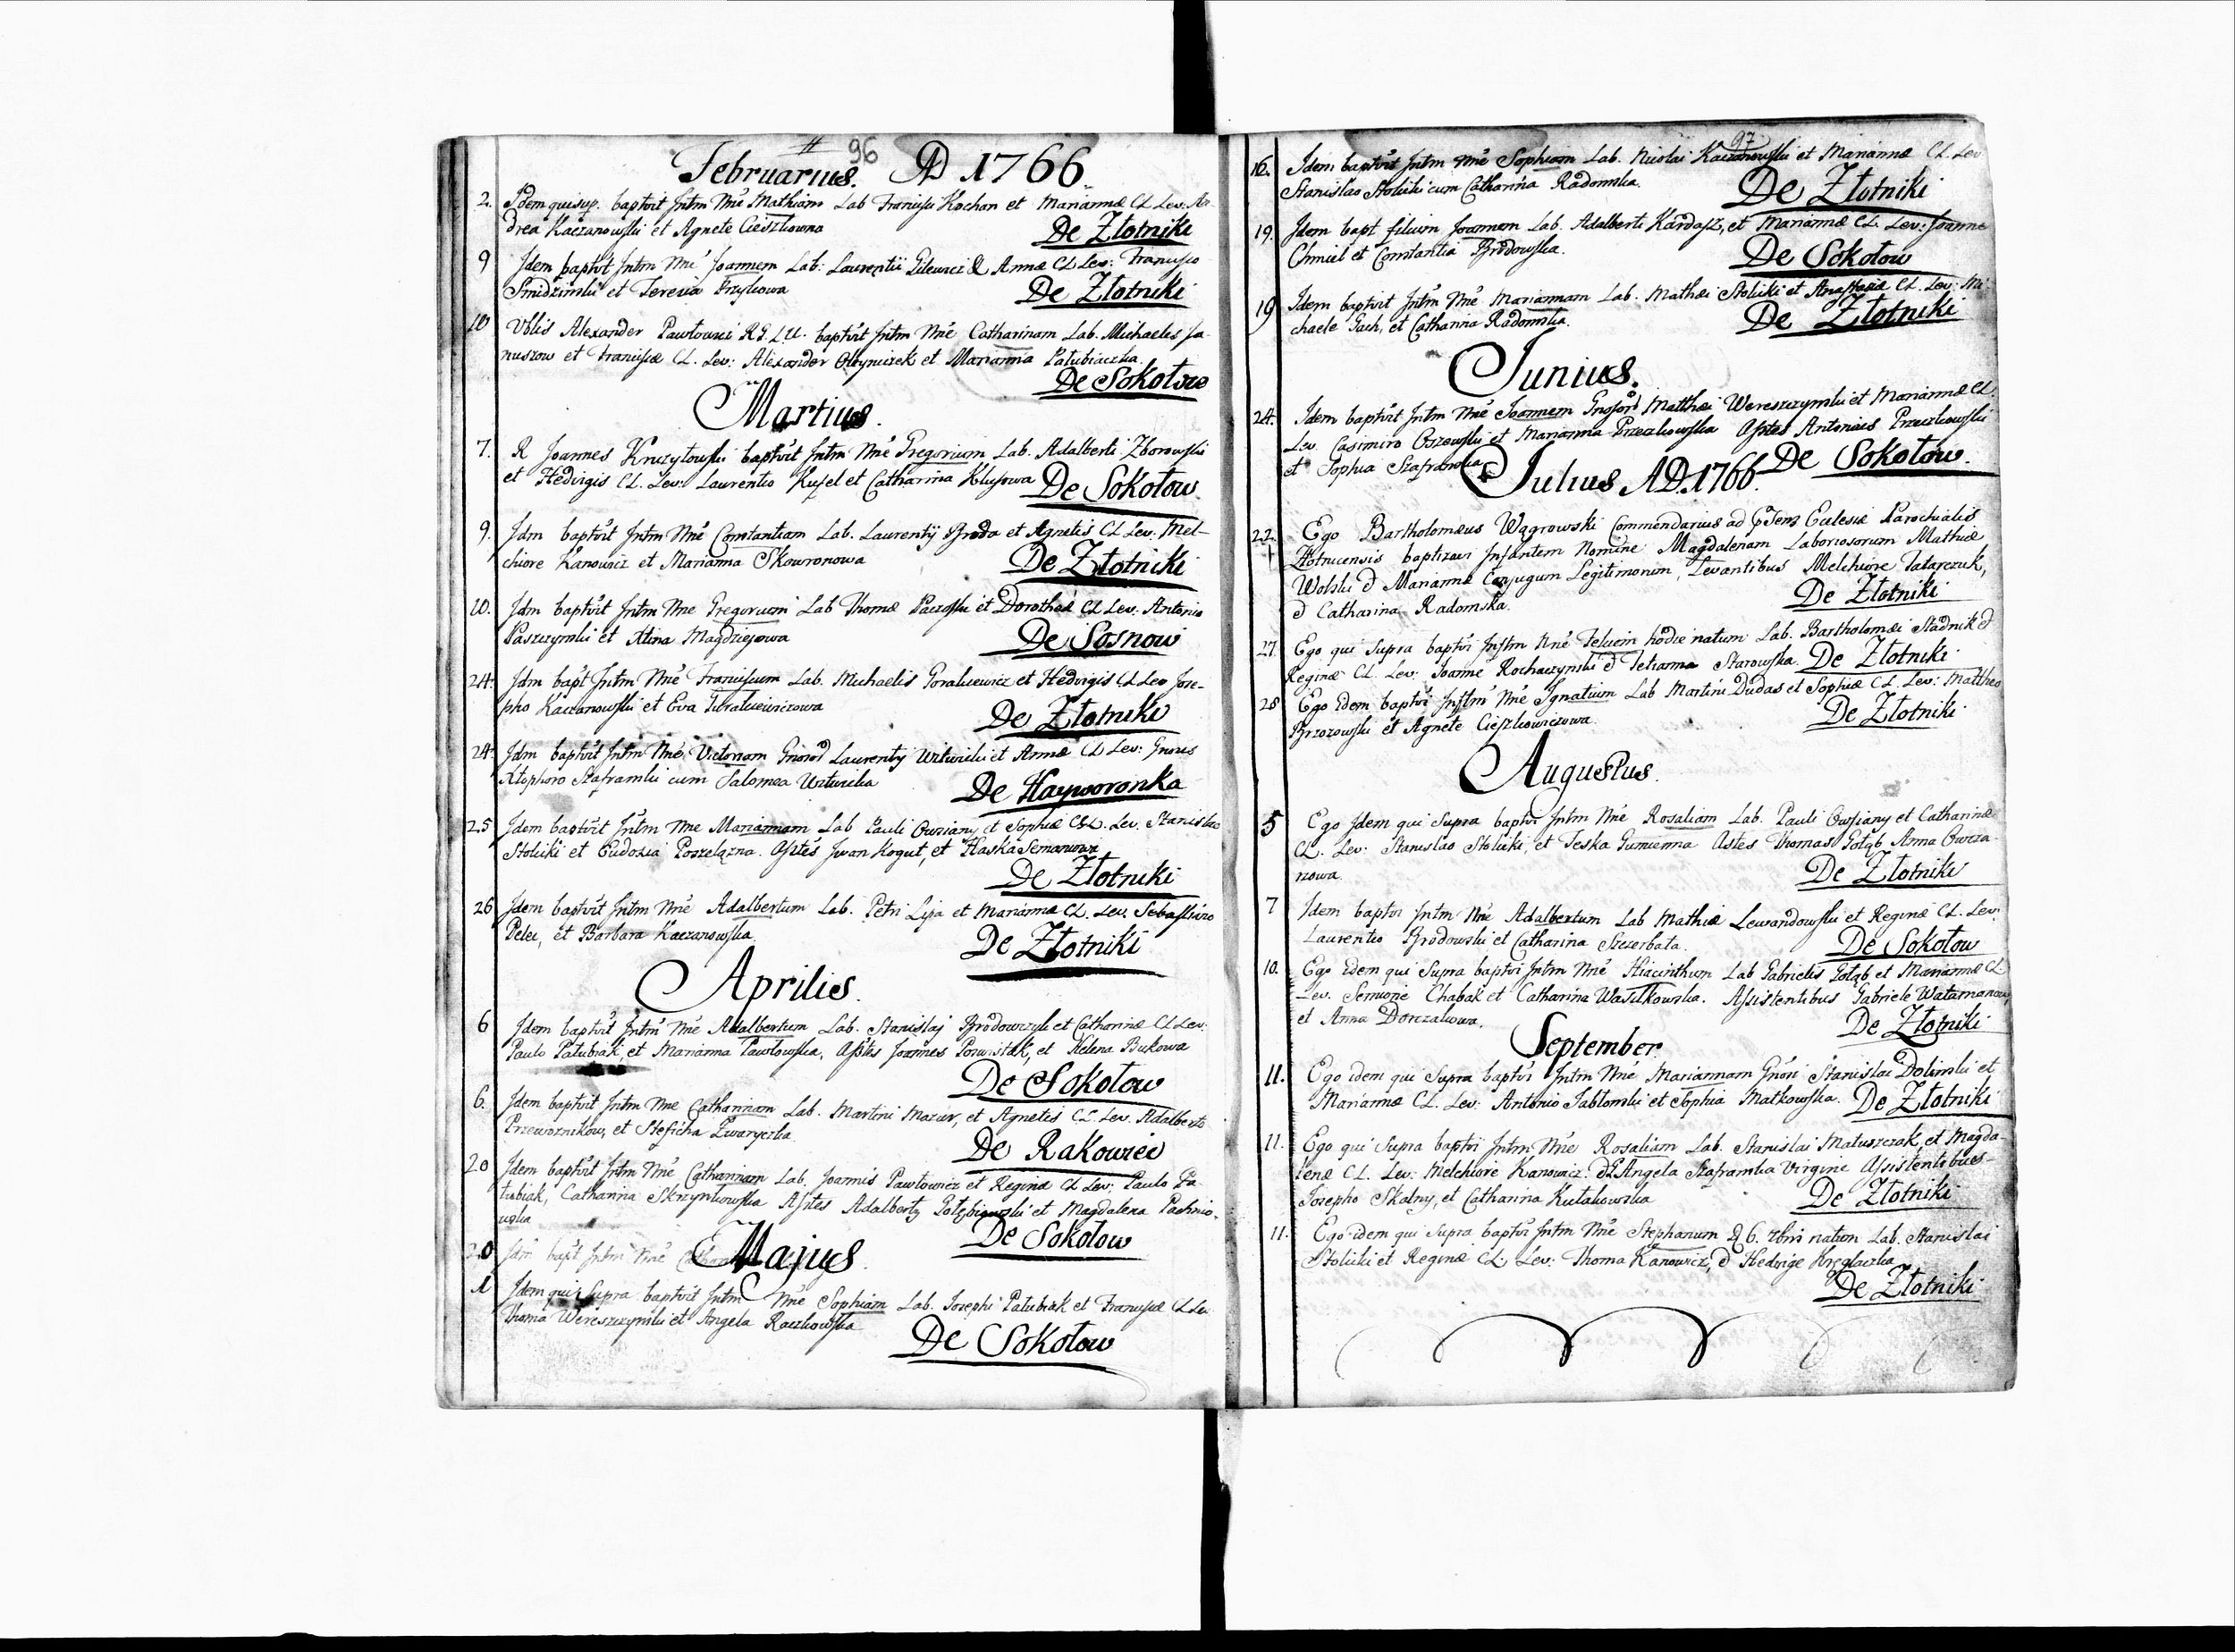 96
Februarius. AD 1766
2. Idem qui sup. baptvit Intm Nne Mathiam Lab Francisci Kochan et Mariannæ CL Lev: An
drea Kaczanowski et Agnete Cieszkowna
De Złotniki
9 Idem baptvit Intm Nne Joannem Lab: Laurentii Gilewicz & Annæ CL Lev: Francisco
Smidzinski et Teresia
De Złotniki
10 Alexander baptvit Intm Nne Catharinam Lab. Michaelis Ja-
nuszow et Franciscæ CL. Lev: Alexander Oleyniczek et Marianna Patubiaczka
De Sokołow
Martius.
7. R Joannes Kruzytowski baptvit Intm Nne Gregorium Lab. Adalberti Zborowski
et Hedvigis CL. Lev: Laurentio et Catharina
De Sokołow
9. Idm baptvit Intm Nne Constantiam Lab. Laurentij Broda et Agnetis CL Lev: Mel-
chiore Kanowicz et Marianna Skowronowa
De Złotniki
10. Idm baptvit Intm Nne Gregorium Lab Thomæ et Dorotheæ CL Lev: Antonio
Paszczynski et Magdziejowa
De Sosnow
24. Idm bapt Intm Nne Franciscum Lab. Michaelis Goralewicz et Hedvigis CL Lev Jose-
pho Kaczanowski et Eva
De Złotniki
24. Idm baptvit Intm Nne Victoriam Laurentij et Annæ CL Lev:
Szaframski cum Salomea
De Hayworonka
25 Idem baptvit Intm Nne Mariannam Lab Pauli Owsiany et Sophiæ C&L. Lev. Stanislao
Stolicki et Eudoxia Poszelązna. Astes Iwan Kogut, et Haska Semanowa
De Złotniki
26 Idem baptvit Intm Nne Adalbertum Lab. Petri Lipa et Mariannæ CL. Lev. Sebastiano
Pelec, et Barbara Kaczanowska.
De Złotniki
Aprilis.
6 Idem baptvit Intm Nne Adalbertum Lab. Stanislaj Brodowczyk et Catharinæ CL Lev:
Paulo Patubiak, et Marianna Pawłowska, Astes Joannes et Helena Bukowa
De Sokołow
6. Idem baptvit Intm Nne Catharinam Lab. Martini Mazur, et Agnetis CL Lev. Adalberto
Przewoznikow, et Steficha Zwaryczka
De Rakowiec
20 Idem baptvit Intm Nne Catharinam Lab. Joannis Pawłowicz et Reginæ CL Lev: Paulo Pa
tubiak, Catharina Skrzynkowska Astes Adalberty et Magdalena Pachnio-
wska
De Sokołow
20 Idm bapt Intm Nne
Majus.
1 Idem qui supra baptvit Intm Nne Sophiam Lab. Josephi Patubiak et Franciscæ CL Lev
Thoma Wereszczynski et Angela Raczkowska
De Sokołow
97
16. Idem baptvit Intm Nne Sophiam Lab. Nicolai Kaczanowski et Mariannæ CL Lev
Stanislao Stolicki cum Catharina Radomska.
De Złotniki
19. Idem bapt filium Joannem Lab. Adalberti Kardasz, et Mariannæ CL. Lev: Joanne
Chmiel et Constantia Brodowska.
De Sokołow
19 Idem baptvit Intm Nne Mariannam Lab. Mathæi Stolicki et Anastasiæ CL. Lev: Mi-
chaele Gach, et Catharina Radomska.
De Złotniki
Junius.
24. Idem baptvit Intm Nne Joannem Matthæi Wereszczynski et Mariannæ CL.
Lev. Casimiro et Marianna Przeczkowska Astes Antonius Przeczkowski
et Sophia Szaframska
De Sokołow.
Julius AD. 1766.
22. Ego Bartholomæus Wągrowski Commendarius ad pTens Ecclesiæ Parochialis
Złotnicensis baptizavi Infantem Nomine Magdalenam Laboriosorum Mathiæ
Wolski & Mariannæ Conjugum Legitimorum, Levantibus Melchiore Tatarczuk,
& Catharina Radomska.
De Złotniki
27. Ego qui Supra baptvi Infm Nne hodie natum Lab. Bartholomæi Stadnik &
Reginæ CL. Lev: Joanne Rochaczynski & Tetianna Starowska.
De Złotniki
28 Ego idem baptvi Inftm Nne Ignatium Lab Martini Dudas et Sophiæ CL. Lev: Mattheo
Brzozowski et Agnete Cieszkowiczowa.
De Złotniki
Augustus.
5 Ego Idem qui Supra baptvi Intm Nne Rosaliam Lab. Pauli Owsiany et Catharinæ
CL. Lev: Stanislao Stolicki, et Teska Gumienna Astes Thomas Gołąb Anna Owcza-
rzowa.
De Złotniki
7 Idem baptvi Intm Nne Adalbertum Lab Mathiæ Lewandowski et Reginæ CL. Lev:
Laurentio Brodowski et Catharina Szczerbata.
De Sokołow
10. Ego idem qui Supra baptvi Intm Nne Hiacinthum Lab Gabrielis Gołąb et Mariannæ CL
Lev. Semione Chabak et Catharina Wasilkowska. Assistentibus Gabriele Watamanow,
et Anna Dorczakowa.
De Złotniki
September
11. Ego idem qui Supra baptvi Intm Nne Mariannam Stanislai Dolinski et
Mariannæ CL. Lev: Antonio Jabłomski et Sophia Matkowska.
De Złotniki
11. Ego qui Supra baptvi Intm Nne Rosaliam Lab. Stanislai Matuszczak, et Magda-
lenæ CL. Lev: Melchiore Kanowicz & Angela Szaframska Virgine Assistentibus
Josepho Skalny, et Catharina Kułakowska
De Złotniki
11. Ego idem qui supra baptvi Intm Nne Stephanum D 6. 7bris natum Lab. Stanislai
Stolicki et Reginæ CL: Lev: Thoma Kanowicz, & Hedvige
De Złotniki